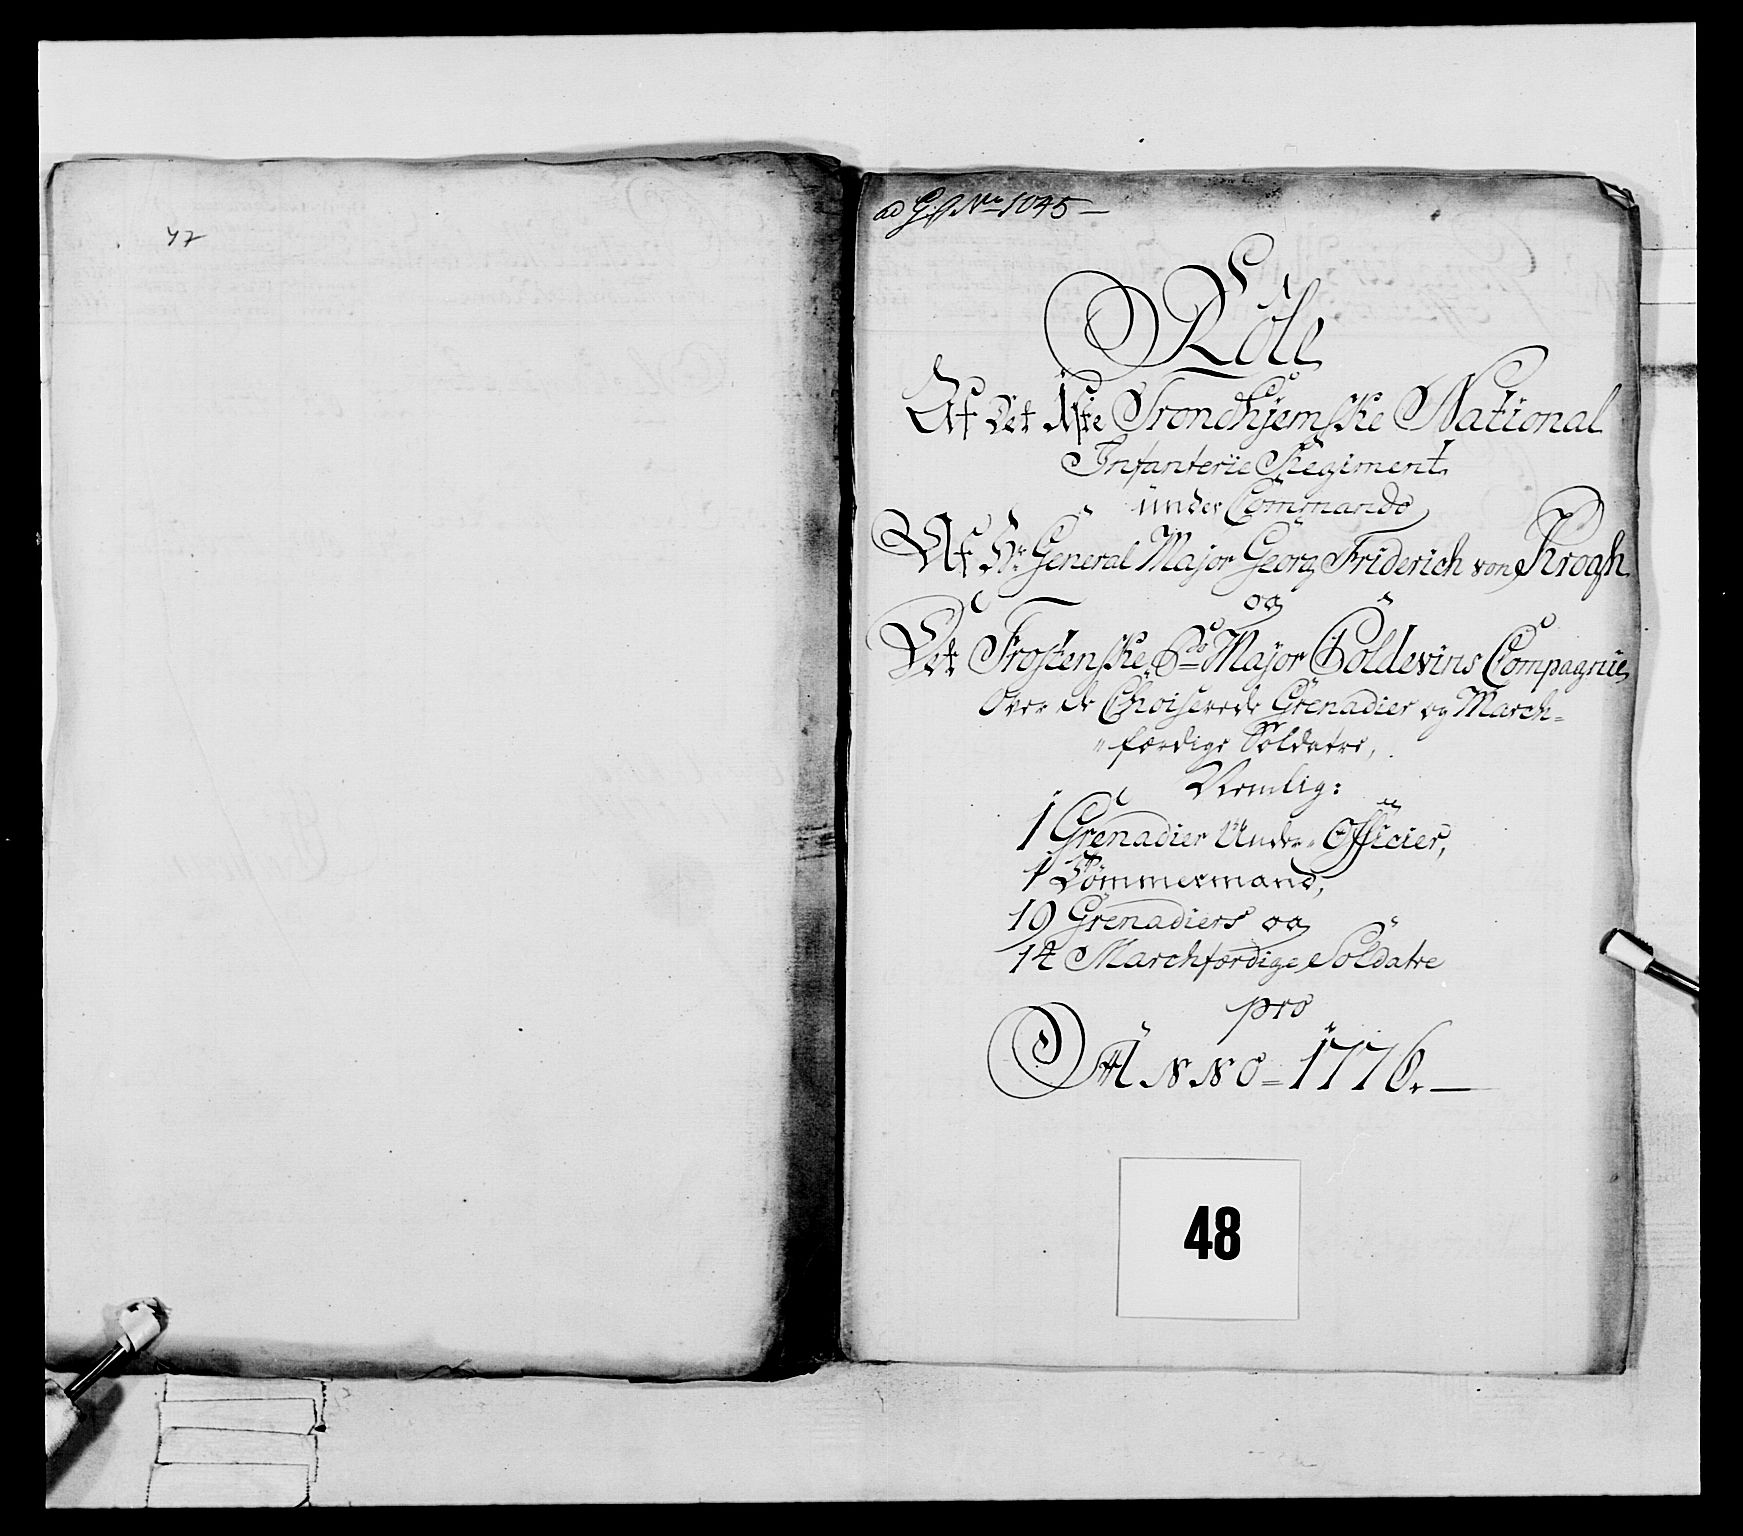 47
ad G:f No 1045
Röle
Af Det 1ste Trondhjemske National
Infanterie Regiment
under Commando
Af Hr General Major Georg Friderich von Krogh
og
Det Frostenske Major Coldevins Compagnie
Over de Choiserede Grenadier og March-
færdige Soldatre,
Nemlig:
1 Grenadier Under-Officier,
1 Tömmermand,
19 Grenadiers og
14 Marchfærdige Soldatre
pro
ANNO=1776.
48